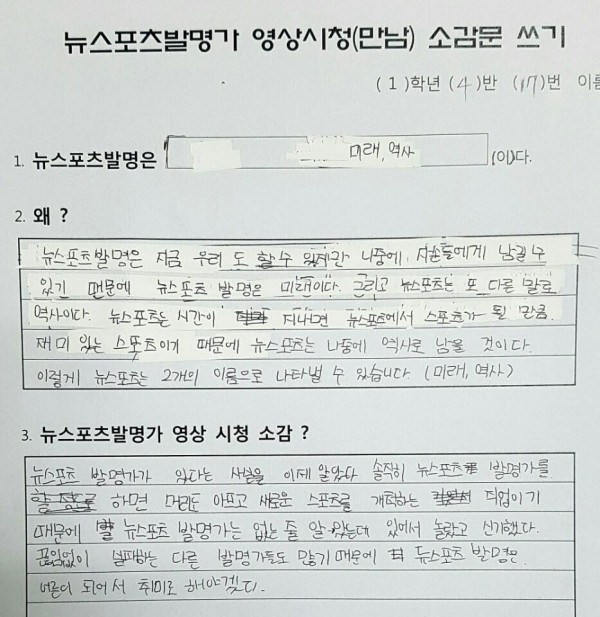 뉴스포츠발명가 영상시청(만남) 소감문 쓰기
( 1 )학년 ( 4 )반 (17)번 이름
1. 뉴스포츠발명은 미래, 역사 (이)다.
2. 왜 ?
뉴스포츠발명은 지금 우리 도 할수 있지만 나중에, 자손들에게 남길 수
있기 때문에 뉴스포츠 발명은 미래이다. 그리고 뉴스포츠는 또 다른 말로
역사이다. 뉴스포츠는 시간이 지나면 뉴스포츠에서 스포츠가 될 만큼.
재미 있는 스포츠이기 때문에 뉴스포츠는 나중에 역사로 남을 것이다.
이렇게 뉴스포츠는 2개의 이름으로 나타낼 수 있습니다. (미래, 역사)
3. 뉴스포츠발명가 영상 시청 소감 ?
뉴스포츠 발명가가 있다는 사실을 이제 알았다 솔직히 뉴스포츠 발명가를
하면 머리도 아프고 새로운 스포츠를 개척하는 직업이기
때문에 뉴스포츠 발명가는 없는 줄 알았는데 있어서 놀랐고 신기했다.
끊임없이 실패하는 다른 발명가들도 많기 때문에 뉴스포츠 발명은
어른이 되어서 취미로 해야겠다.